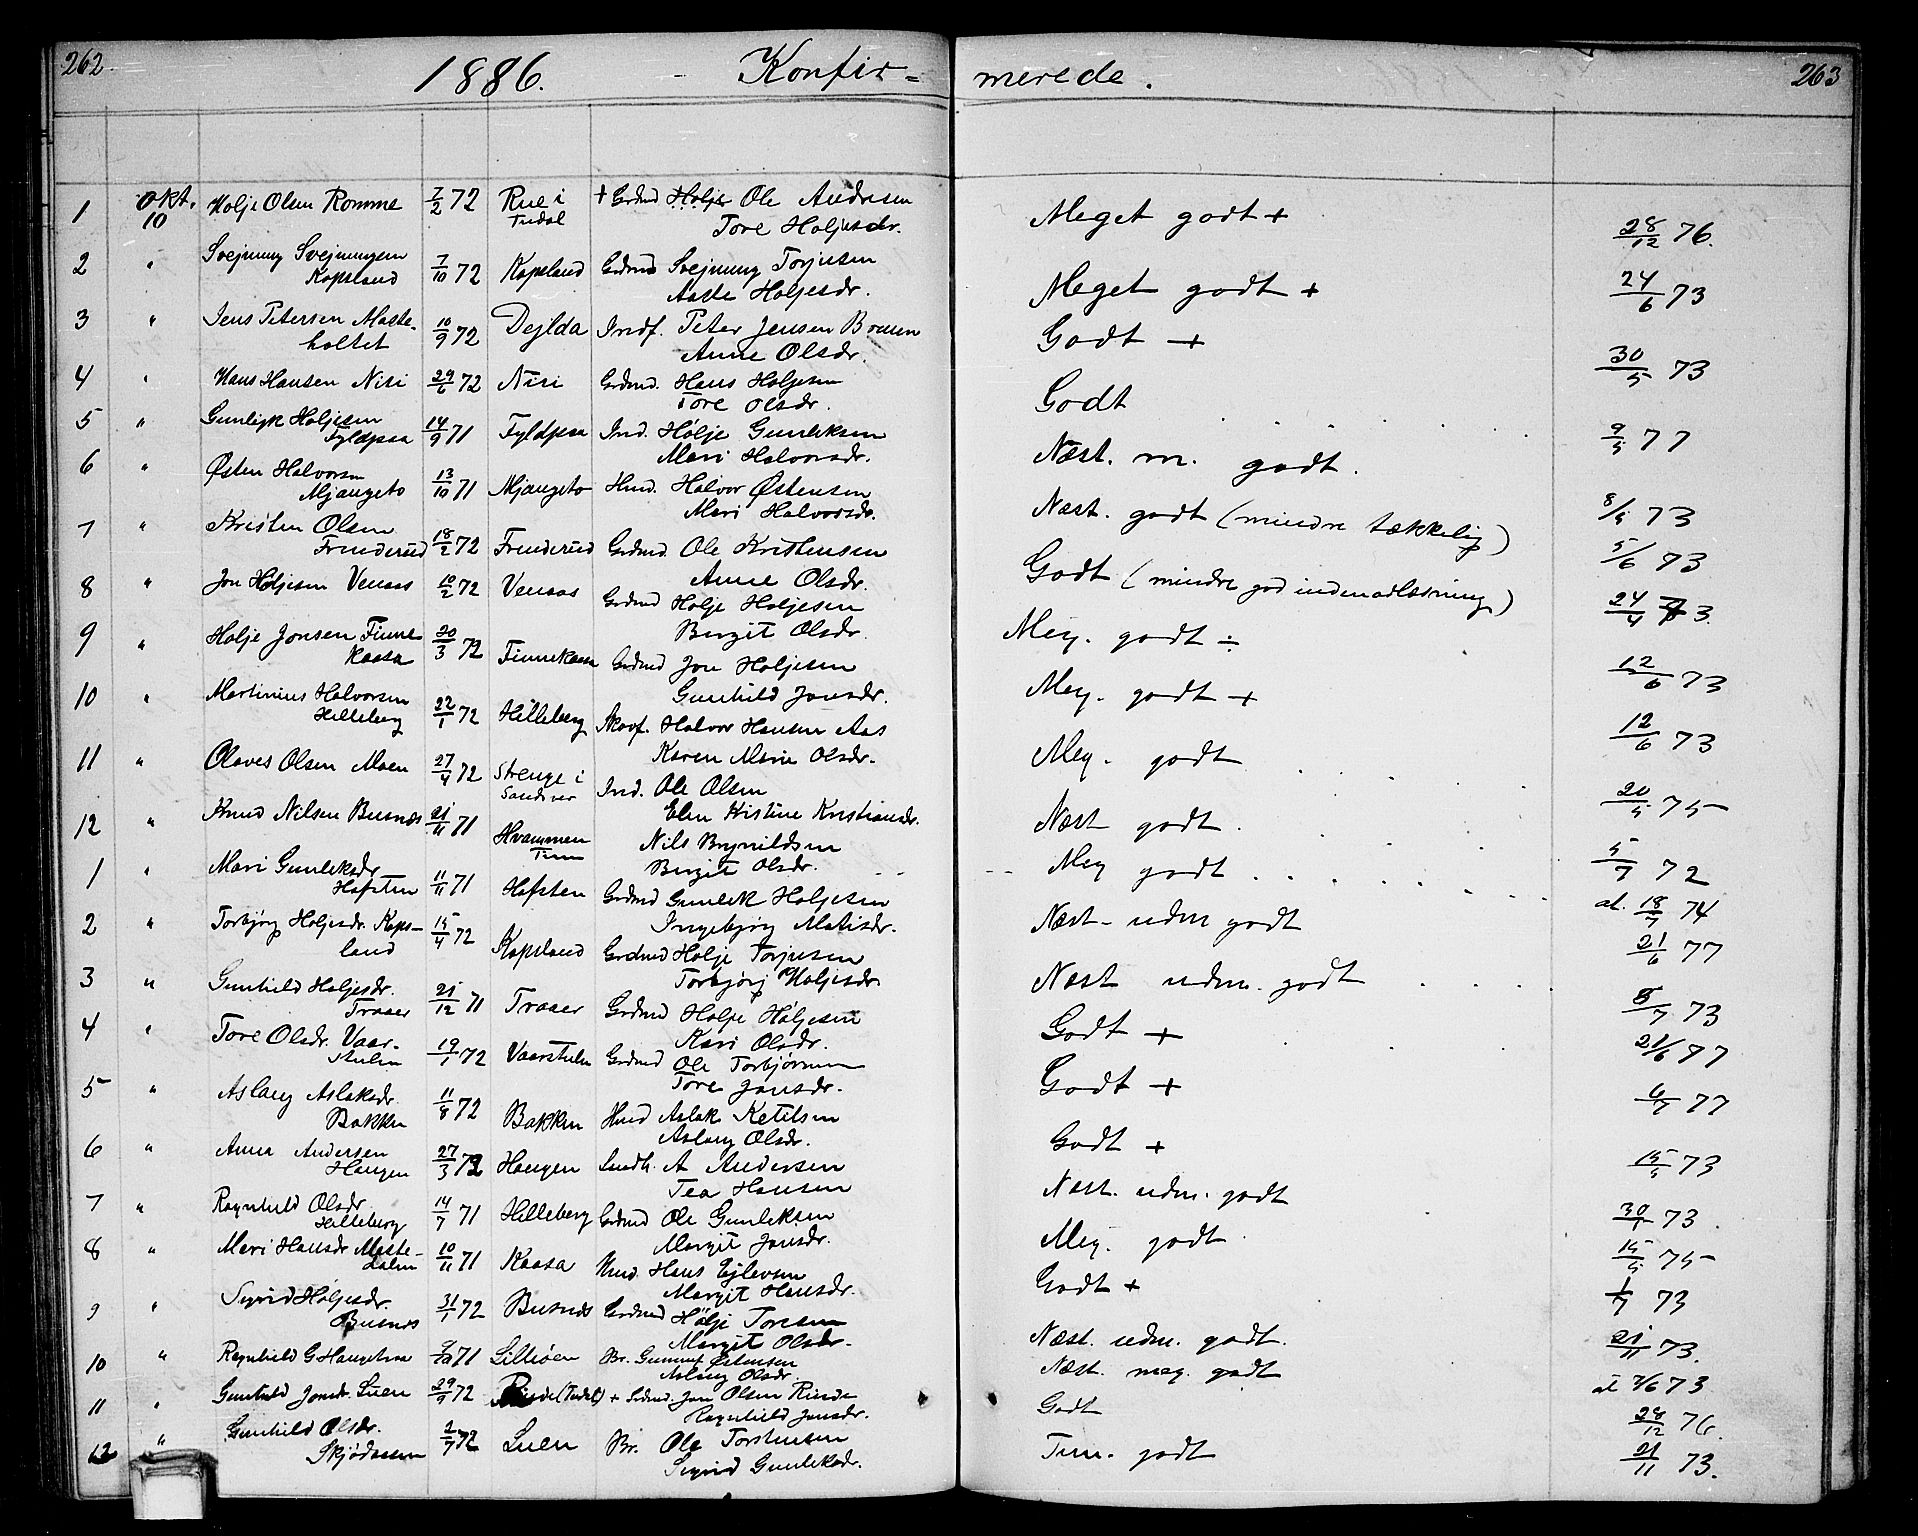 262.
1886. Konfir=
merede.
263
1 Okt. 10 Holje Olsen Romme 7/2 72 Rue i Tudal + Grdmd Holje Ole Andresen
Tore Holjesdr. Meget godt + 28/12 76.
2 " Svejnung Svejnungsen Kopsland 7/10 72 Kopsland Grdmd Svejnung Torjusen
Aaste Holjesdr. Meget godt + 24/6 73
3 " Jens Petersen Maste-holtet 10/9 72 Dejlda Indf. Peter Jensen Bomen
Anne Olsdr. Godt + 30/5 73
4 " Hans Hansen Nisi 29/6 72 Nisi Grdmd. Hans Holjesen
Tore Olsdr. Godt 9/5 77
5 " Gunleik Holjesen Fyldpaa 14/9 71 Fyldpaa Ind. Holje Gunleksen
Mari Halvorsdr. Næst. m. godt. 8/5 73
6 " Østen Halvorsen Mjaugeto 13/10 71 Mjaugeto Hmd. Halvor Østensen
Mari Halvorsdr. Næst. godt (mindre tækkelig) 5/6 73
7 " Kristen Olsen Fruderud 18/2 72 Fruderud Grdmd. Ole Kristensen
Anne Olsdr. Godt (mindre god indenadlæsning) 24/4 73.
8 " Jon Holjesen Venaas 10/2 72 Venaas Grdmd Holje Holjesen
Birgit Olsdr. Meg. godt ÷ 12/6 73
9 " Holje Jonsen Finne kaasa 20/3 72 Finnekaasa Grdmd Jon Holjesen
Gunhild Jonsdr. Meg. godt + 12/6 73
10 " Martinius Halvorsen Hilleberg 22/1 72 Hilleberg Skovf. Halvor Hansen Aas
Karen Marie Olsdr. Meg. godt 20/5 75
11 " Olaves Olsen Moen 27/4 72 Strenge i Sandver Ind. Ole Olsen
Elen Kristine Kristiansdr. Næst godt. 5/7 72
12 " Knud Nilsen Busnes 21/11 71 Hvammen Tinn Nils Brynildsen
Birgit Olsdr. Meg godt at. 18/7 74
1 " Mari Gunleksdr Hafsten 11/11 71 Hafsten Grdmd Gunlek Holjesen
Ingebjørg Matisdr. Næst- udm godt 21/6 77
2 " Torbjørg Holjesdr. Kops-land 15/4 72 Kopsland Grdmd Holje Torjusen
Torbjørg Holjesdr Næst udm. godt 5/7 73
3 " Gunhild Holjesdr. Traaer 21/12 71 Traaer Grdmd Holje Holjesen
Kari Olsdr. Godt + 21/6 77
4 " Tore Olsdr. Vaar-stulen 19/1 72 Vaarstulen Grdmd Ole Torbjørnsen
Tore Jonsdr. Godt + 6/7 77
5 " Aslaug Aslaksdr. Bakken 11/8 72 Bakken Hmd Aslak Ketilsen
Aslaug Olsdr. Godt + 15/5 73
6 " Anna Andersen Haugen 27/3 72 Haugen Landh. A Andersen
Tea Hansen Næst. udm. godt 30/1 73.
7 " Ragnhild Olsdr Hilleberg 14/7 71 Hilleberg Grdmd Ole Gunleksen
Margit Jonsdr. Meg. godt 15/5 75
8 " Mari Hansdr Maste-dalen 10/11 71 Kaasa Hmd. Hans Ejlevsen
Margit Hansdr. Godt + 1/7 73
9 " Sigrid Holjesdr. Busnes 31/1 72 Busnes Grdmd Holje Toresen
Margit Olsdr. Næst. udm. godt. 21/11 73.
10 " Ragnhild G Haugetraa 71 Lilleøen Br. Gunnuf Østensen
Aslaug Olsdr. Næst. meg. godt at 7/6 73
11 " Gunhild Jonsdr Luen 29/9 72 (Tudal) + Grdmd. Jon Olsen Rinde
Ragnhild Jonsdr. Godt 28/12 76.
12 " Gunhild Olsdr. Skjødaasen 2/7 72 Luen Br. Ole Torstensen
Sigrid Gunleksdr. Tem. godt 21/11 73.